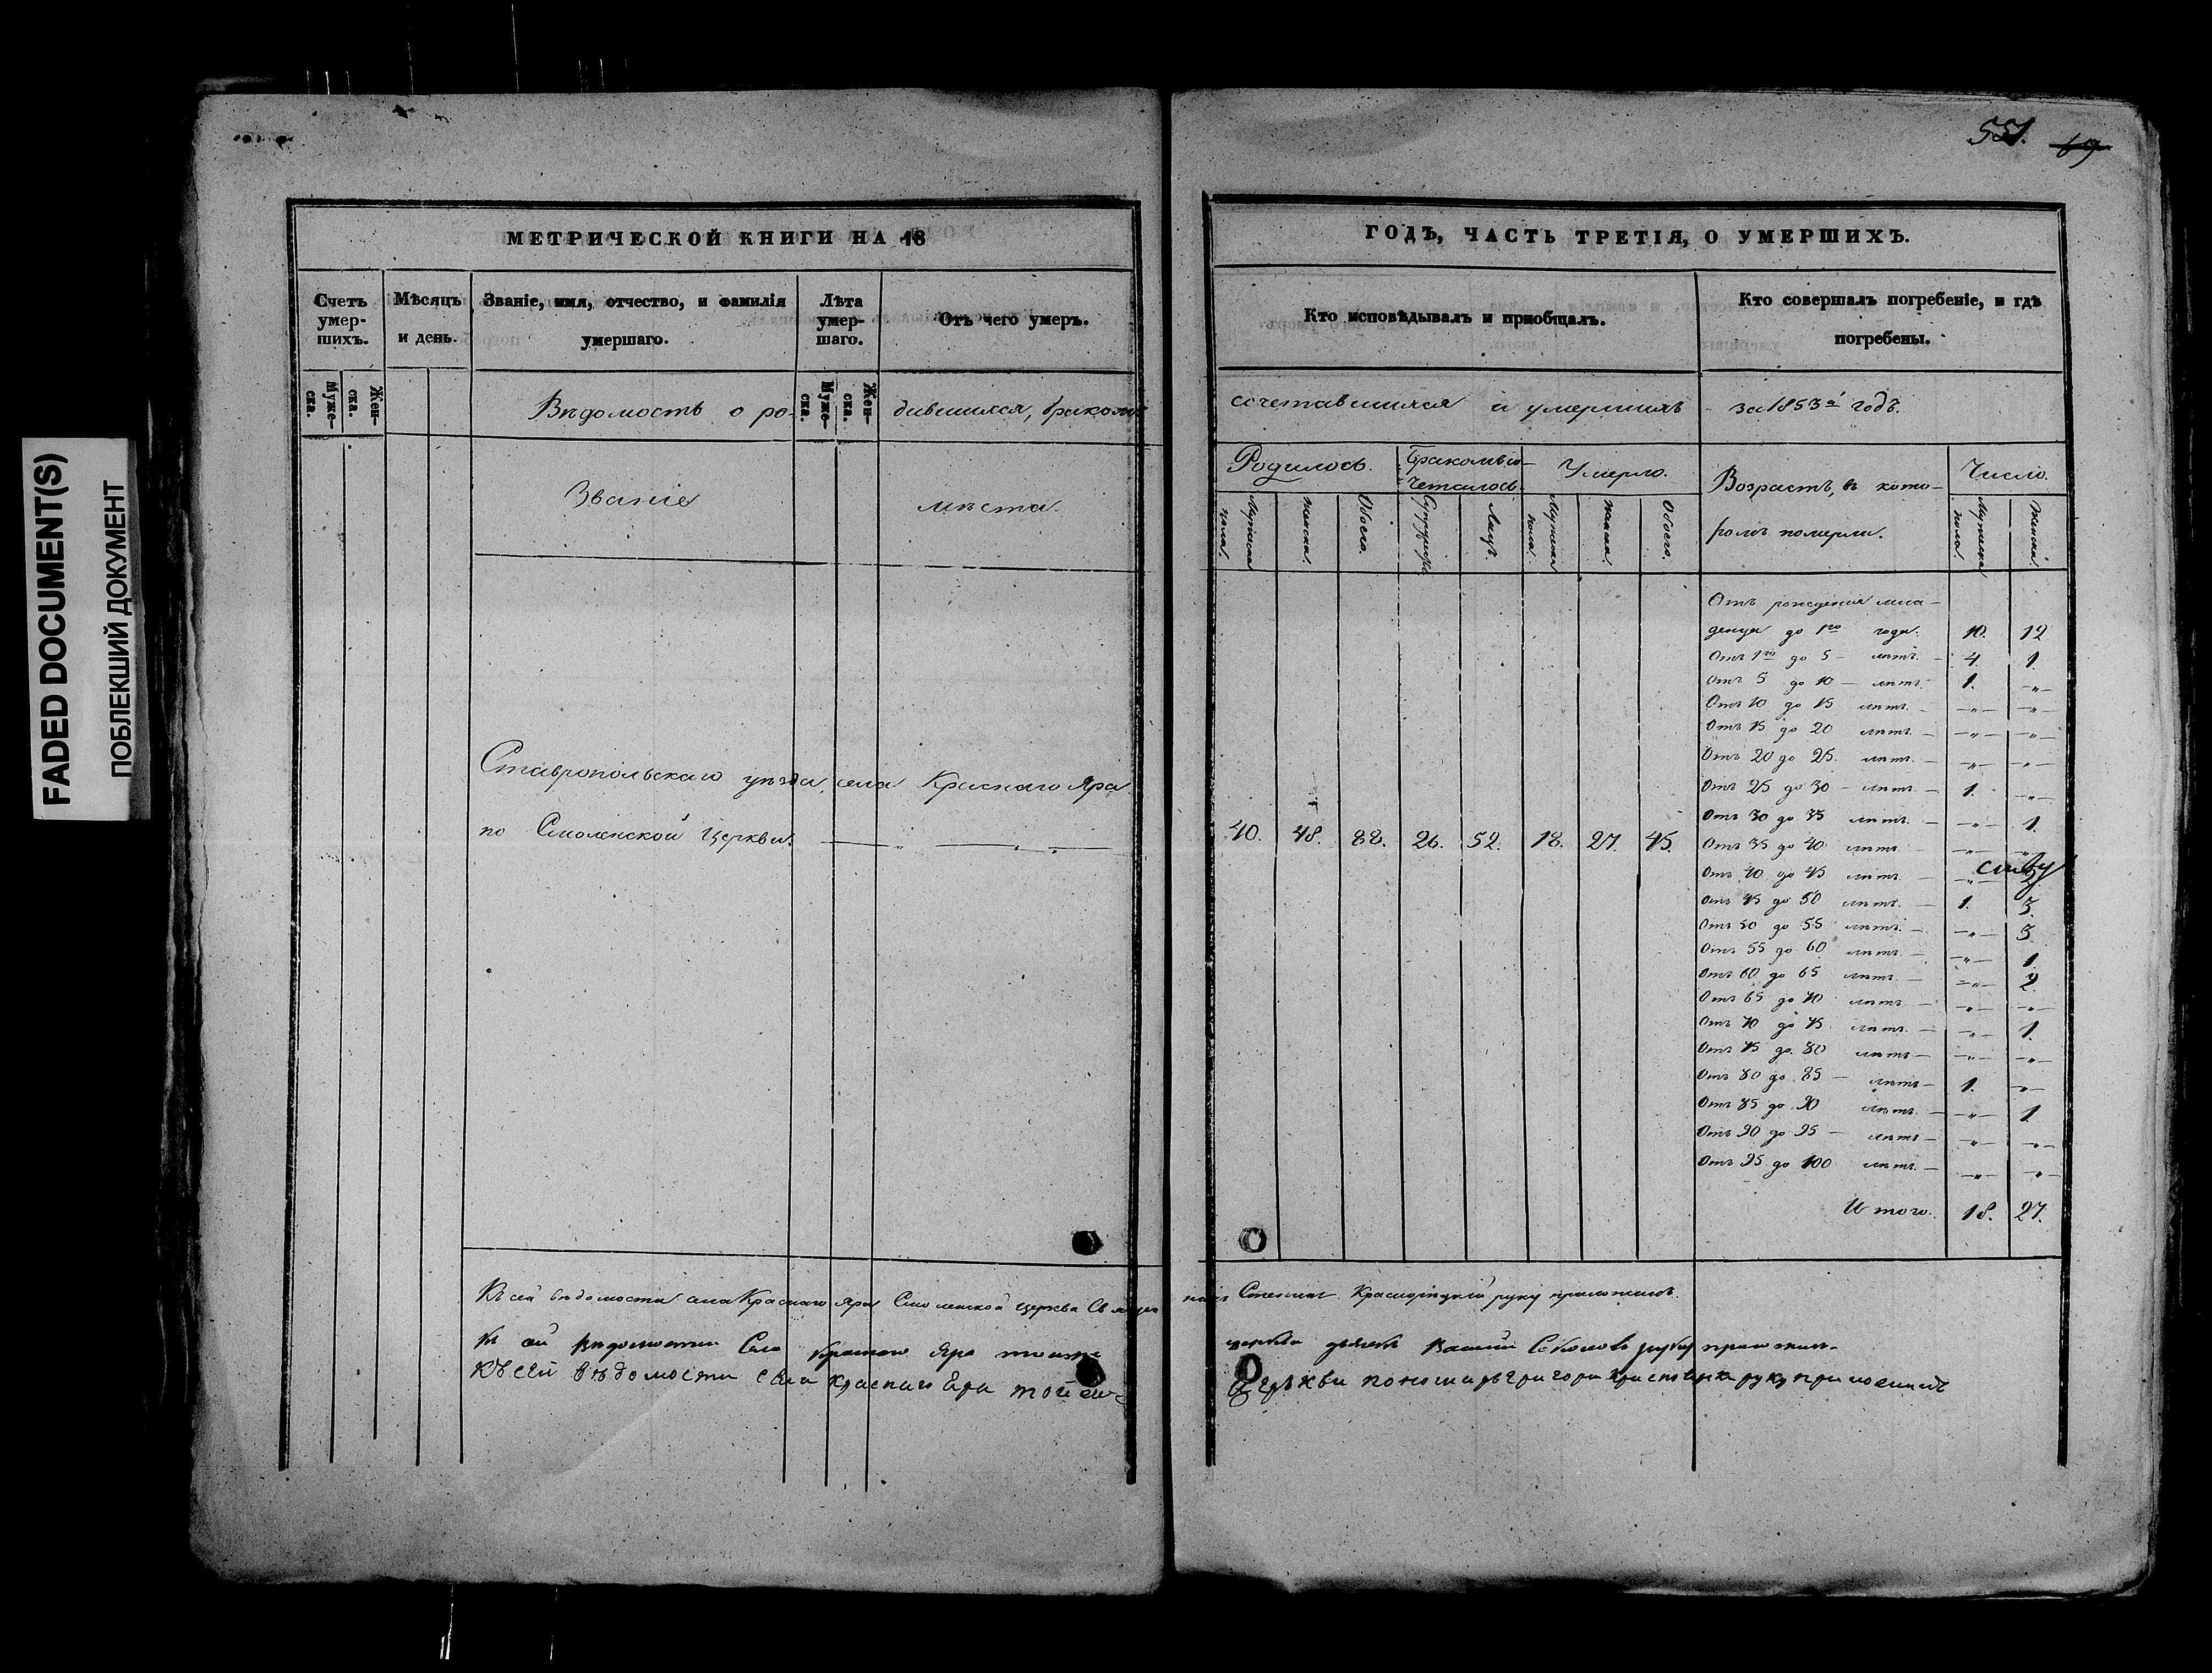 FADED DOCUMENT(S)
ПОБЛЕКШИЙ ДОКУМЕНТ
МЕТРИЧЕСКОЙ КНИГИ НА 18
Счетъ умер- шихъ.
Муже- ска.
Жен- ска.
Мѣсяцъ и день.
Званіе, имя, отчество, и фамилія умершаго.
Лѣта умер- шаго.
Муже- ска.
Жен- ска.
Отъ чего умеръ.
Вѣдомость о ро- дившихся, бракомъ
Званіе мѣста.
Ставропольскаго уѣзда, села Краснаго Яра
по Смоленской Церкви.
551. 69
ГОДЪ, ЧАСТЬ ТРЕТІЯ, О УМЕРШИХЪ.
Кто исповѣдывалъ и пріобщалъ.
Кто совершалъ погребеніе, и гдѣ погребены.
сочетавшихся и умершихъ за 1853й годъ.
Родилось.
Мужеска пола.
Женска.
Обоего.
Бракомъ со-
четалось.
Супружствъ
Лицъ.
Умерло.
Мужеска пола.
Женска.
Обоего.
Возрастъ, въ кото-
ромъ померли.
Число.
Мужеска пола.
Женска.
40. 48. 88. 26. 52. 18. 27. 45.
Отъ рожденія мла-
денца до 1го года. 10. 12
Отъ 1го до 5 - лѣтъ. - 4. 1.
Отъ 5 до 10 - лѣтъ. 1. -"-
Отъ 10 до 15 лѣтъ. - -"- -"-
Отъ 15 до 20 лѣтъ. - -"- -"-
Отъ 20 до 25. лѣтъ. - -"- -"-
Отъ 25 до 30 - лѣтъ. - 1. -"-
Отъ 30 до 35 лѣтъ. - -"- 1.
Отъ 35 до 40 лѣтъ. - -"- -"-
Отъ 40 до 45 лѣтъ. - -"-
Отъ 45 до 50 лѣтъ. - 1. 3.
Отъ 50 до 55 лѣтъ. - -"- 3.
Отъ 55 до 60 лѣтъ. - -"- 1.
Отъ 60 до 65 лѣтъ. - -"- 2.
Отъ 65 до 70 лѣтъ - -"- -"-
Отъ 70 до 75 лѣтъ. - -"- 1.
Отъ 75 до 80 лѣтъ - -"- -"-
Отъ 80 до 85 - лѣтъ - 1. -"-
Отъ 85 до 90 лѣтъ. - -"- 1
Отъ 90 до 95 - лѣтъ - -"- -"-
Отъ 95 до 100 лѣтъ. - -"- -"-
Итого. 18. 27.
Къ сей вѣдомости села Краснаго Яра Смоленской церкви Священникъ Стефанъ руку приложилъ.
Къ сей Вѣдомости Села Краснаго Яра тойже церкви дьячекъ Василій Соколовъ руку приложилъ.
Къ сей вѣдомости села краснаго Яра той же церкви пономарь григори руку приложилъ